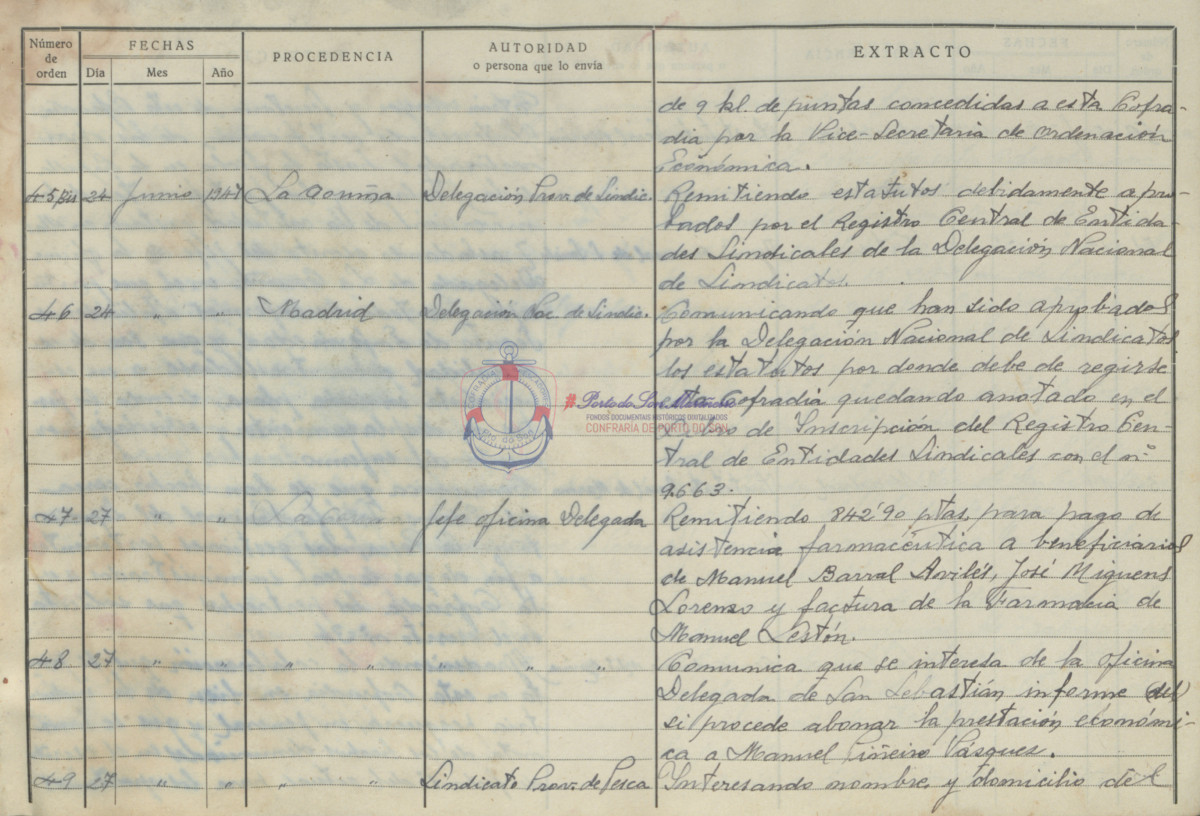 Número de orden | FECHAS | PROCEDENCIA | AUTORIDAD o persona que lo envía | EXTRACTO
Día | Mes | Año
de 9 kl. de puntas concedidas a esta Cofra-
dia por la Vice-Secretaria de Ordenación
Económica.
45 bis 24 Junio 1947 La Coruña Delegación Prov. de Sindic. Remitiendo estatutos debidamente apro-
bados por el Registro Central de Entida-
des Sindicales de la Delegación Nacional
de Sindicatos.
46 24 " " Madrid Delegación Nac. de Sindic. Comunicando que han sido aprobados
por la Delegación Nacional de Sindicatos
los estatutos por donde debe de regirse
esta Cofradia quedando anotado en el
Libro de Inscripción del Registro Cen-
tral de Entidades Sindicales con el nº
9.663.
47- 27 " " La Coruña Jefe oficina Delegada Remitiendo 842'90 ptas, para pago de
asistencia farmacéutica a beneficiarios
de Manuel Barral Avilés, José Miguens
Lorenzo y factura de la Farmacia de
Manuel Lestón.
48. 27 " " " " " " " Comunica que se interesa de la oficina
Delegada de San Sebastián informe
si procede abonar la prestación económi-
ca a Manuel Piñeiro Vásques.
49 27 " " " " Sindicato Prov. de Pesca Interesando nombre y domicilio de l
COFRADIA DE PESCADORES
PTO. DO SON
#PortodoSonMariñeiro
FONDOS DOCUMENTAIS HISTÓRICOS DIXITALIZADOS
CONFRARÍA DE PORTO DO SON